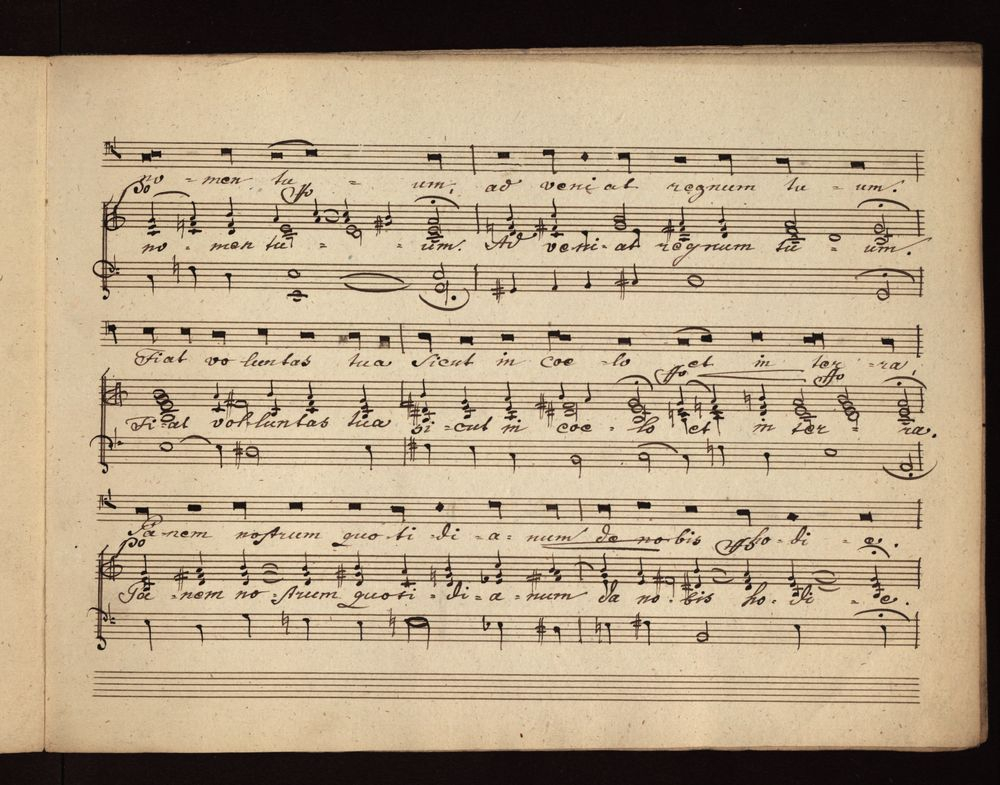 no = men tu = um. ad veni at regnum tu = um.
po ffo
no = men tu = = um. Ad veni = at regnum tu = um.
Fiat vo luntas tua Sicut in coe = lo et in ter = ra,
ffo ffo
Fi = at voluntas tua si = cut in coe = lo et in ter = ra.
Pa = nem nostrum quo ti = di = a = num da no = bis ho = di = e.
po ffo
Pa = nem no = strum quoti = di = a = num da no = bis ho = di = e.